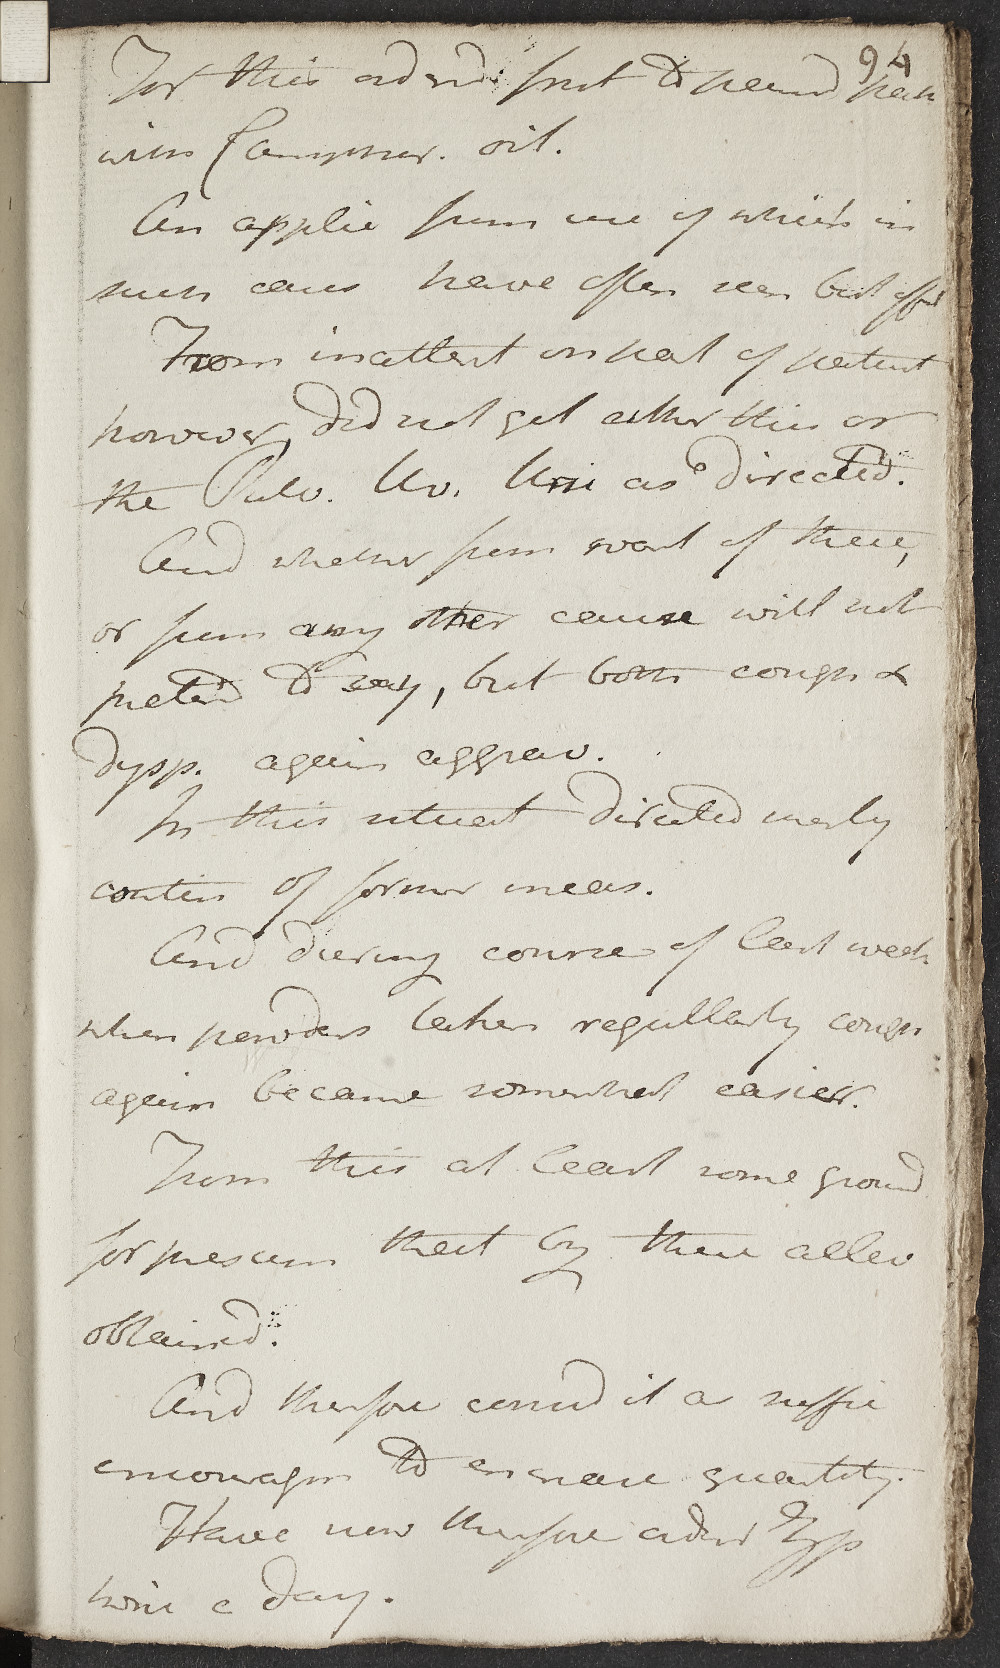 94
For this ordered part to be rubbed
with Camphor. oil.
An applic from use of which in
such cases have often seen best eff
From inattent on part of patient
however, did not get either this or
the Pulv. Uv. Ursi as directed.
And whether from want of these,
or from any other cause will not
pretend to say, but both cough &
dysp. again aggrav.
In this situat directed merely
contin of former meas.
And during course of last week
when powders taken regullarly cough
again became somewhat easier.
From this at least some ground
for presum that by these allev
obtained.
And therefore consid it a suffic
encouragm to encrease quantity.
Have now therefore ordered
twice a day.